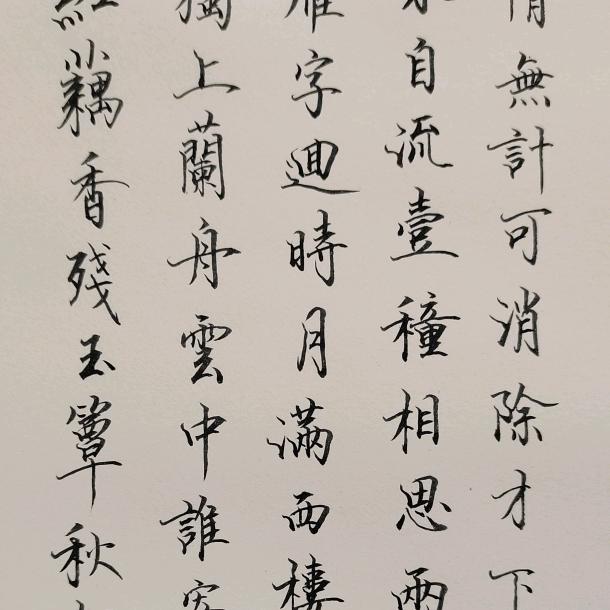 紅藕香殘玉簟秋
獨上蘭舟雲中誰寄
雁字迴時月滿西樓
水自流壹穜相思兩
情無計可消除才下